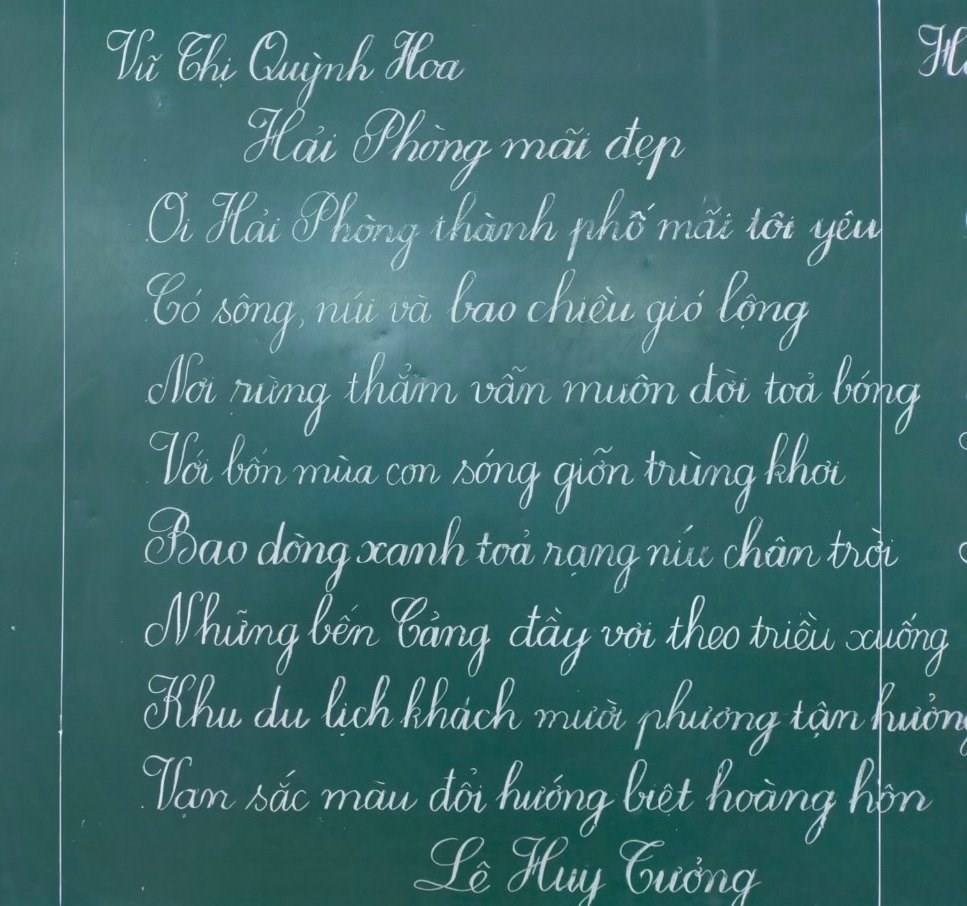 Vũ Thị Quỳnh Hoa
Hải Phòng mãi đẹp
Ơi Hải Phòng thành phố mãi tôi yêu
Có sông, núi và bao chiều gió lộng
Nơi rừng thẳm vẫn muôn đời toả bóng
Với bốn mùa con sóng giỡn trùng khơi
Bao dòng xanh toả rạng níu chân trời
Những bến Cảng đầy vơi theo triều xuống
Khu du lịch khách mười phương tận hưởng
Vạn sắc màu đổi hướng biệt hoàng hôn
Lê Huy Tưởng